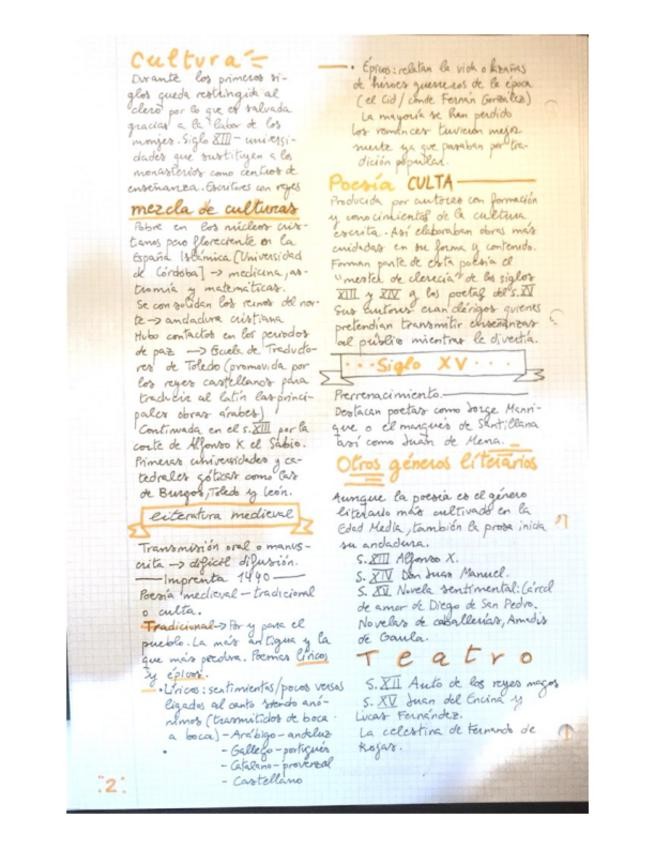 Cultura
Durante los primeros si-
glos queda restringida al
clero por lo que es salvada
gracias a la labor de los
monjes. Siglo XIII - universi-
dades que sustituyen a los
monasterios como centros de
enseñanza. Escritores con reyes
mezcla de culturas
Pobre en los núcleos cris-
tanos pero floreciente en la
España Islámica [Universidad
de Córdoba] → medicina, as-
tromía y matemáticas.
Se consolidan los reinos del nor-
te → andadura cristiana
Hubo contactos en los periodos
de paz → Escuela de Traducto-
res de Toledo (promovida por
los reyes castellanos para
traducir al latín las princi-
pales obras árabes)
Continuada en el s. XIII por la
corte de Alfonso X el Sabio.
Primeras universidades y ca-
tedrales góticas como las
de Burgos, Toledo y León.
literatura medieval
Transmisión oral o manus-
crita → difícil difusión.
Imprenta 1440
Poesía medieval - tradicional
o culta.
Tradicional → Por y para el
pueblo. La más antigua y la
que más perdura. Poemas líricos
y épicos.
• Líricos: sentimientos/pocos versos
ligados al canto siendo anó-
nimos (trasmitidos de boca
a boca) - Arábigo-andaluz
- Gallego-portugués
- Catalano-provenzal
- Castellano
:2:
• Épicos: relatan la vida o hazañas
de héroes guerreros de la época
(el Cid / conde Fernán González)
La mayoría se han perdido
Los romances tuvieron mejor
suerte ya que pasaban por tra-
dición popular.
Poesía CULTA
Producida por autores con formación
y conocimientos de la cultura
escrita. Así elaboraban obras más
cuidadas en su forma y contenido.
Forman parte de esta poesía el
"mester de clerecía" de los siglos
XIII y XIV y los poetas del s. XV
Sus autores eran clérigos quienes
pretendían transmitir enseñanzas
al público mientras le divertía.
... Siglo XV ...
Prerrenacimiento.
Destacan poetas como Jorge Manri-
que o el marqués de Santillana
así como Juan de Mena.
Otros géneros literarios
Aunque la poesía es el género
literario más cultivado en la
Edad Media, también la prosa inicia
su andadura.
S. XIII Alfonso X.
S. XIV Don Juan Manuel.
S. XV Novela sentimental: Cárcel
de amor de Diego de San Pedro.
Novelas de caballerías, Amadis
de Gaula.
Teatro
S. XII Auto de los reyes magos
S. XV Juan del Encina y
Lucas Fernández.
La celestina de Fernando de
Rojas.